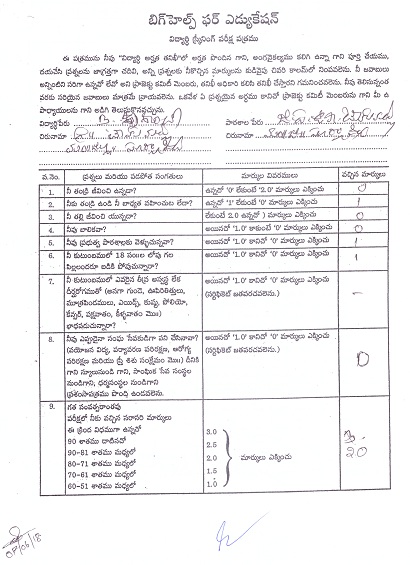 బిగ్‌హెల్ప్ ఫర్ ఎడ్యుకేషన్
విద్యార్థి స్క్రీనింగ్ పరీక్ష పత్రము
ఈ పత్రమును నీవు "విద్యార్థి అర్హత తనిఖీలో అర్హత పొందిన గాని, అంగవైకల్యము కలిగి ఉన్నా గాని పూర్తి చేయుము,
దయచేసి ప్రశ్నలను జాగ్రత్తగా చదివి, అన్ని ప్రశ్నలకు నీకొచ్చిన మార్కులను కుడివైపు చివరి కాలమ్‌లో నింపవలెను. నీ జవాబులు
అన్నింటిని సరిగా ఉన్నదో లేదో అని ప్రాజెక్టు కమిటీ మెంబరు, తనిఖీ అధికారి తనిఖీ చేస్తారని గమనించవలెను. నీవు తెలిసున్నంత
వరకు సరియైన జవాబులు మాత్రమే వ్రాయవలెను. ఒకవేళ ఏ ప్రశ్నయైన అర్థము కానిచో ప్రాజెక్టు కమిటీ మెంబరును గాని మీ ఉ
పాధ్యాయులను గాని అడిగి తెలుసుకొనవచ్చును.
విద్యార్థిపేరు పాఠశాల పేరు
చిరునామా చిరునామా
వ.నెం. ప్రశ్నలు మరియు వడపోత సంగతులు మార్కు వివరములు వచ్చిన మార్కులు
1. నీ తండ్రి జీవించి ఉన్నడా? ఉన్నచో '0' లేకుంటే '2.0' మార్కులు ఎక్కించు 0
2. నీకు తండ్రి ఉండి నీ బాధ్యత వహించుట లేదా? ఉన్నచో '1' లేకుంటే '0' మార్కులు ఎక్కించు 1
3. నీ తల్లి జీవించి యున్నదా? లేకుంటే 2.0 ఉన్నచో ) మార్కులు ఎక్కించు 0
4. నీవు బాలికవా? అయినచో '1.0' కాకుంటే '0' మార్కులు ఎక్కించు 0
5. నీవు ప్రభుత్వ పాఠశాలకు వెళ్ళుచున్నవా? అయినచో '1.0' కానిచో '0' మార్కులు ఎక్కించు 1
6. నీ కుటుంబములో 18 సంఃల లోపు గల అయినచో '1.0' కానిచో '0' మార్కులు ఎక్కించు 1
పిల్లలందరూ బడికి పోవుచున్నారా?
7. నీ కుటుంబములో ఎవరైన తీవ్ర అస్వస్థ లేక అయినచో '1.0' కానిచో '0' మార్కులు ఎక్కించు –
దీర్ఘరోగముతో (అనగా గుండె, ఊపిరితిత్తులు, (సర్టిఫికెట్ జతపరచవలెను.)
మూత్రపిండములు, ఎయిడ్స్, కుష్ఠు, పోలియో,
కేన్సర్, పక్షవాతం, కీళ్ళవాతం మొః)
బాధపడుచున్నారా ?
8. నీవు ఎప్పుడైనా సంఘ సేవకుడిగా పని చేసినావా? అయినచో '1.0' కానిచో '0' మార్కులు ఎక్కించు 0
(వయోజన విద్య, పర్యావరణ పరిరక్షణ, ఆరోగ్య (సర్టిఫికెట్ జతపరచవలెను.)
పరిరక్షణ మరియు స్త్రీ శిశు సంక్షేమం మొః) దీనికి
గాని స్కూలునుండి గాని, సాంఘిక సేవ సంస్థల
నుండిగాని, ధర్మసంస్థల నుండిగాని
ప్రశంసాపత్రము పొంది ఉండవలెను.
9. గత సంవత్సరాంతపు
పరీక్షలో నీకు వచ్చిన సరాసరి మార్కులు
ఈ క్రింద విధముగా ఉన్నచో
90 శాతము దాటినచో 3.0
90-81 శాతము మధ్యలో 2.5
80-71 శాతము మధ్యలో 2.0 మార్కులు ఎక్కించు 20
70-61 శాతము మధ్యలో 1.5
60-51 శాతము మధ్యలో 1.0